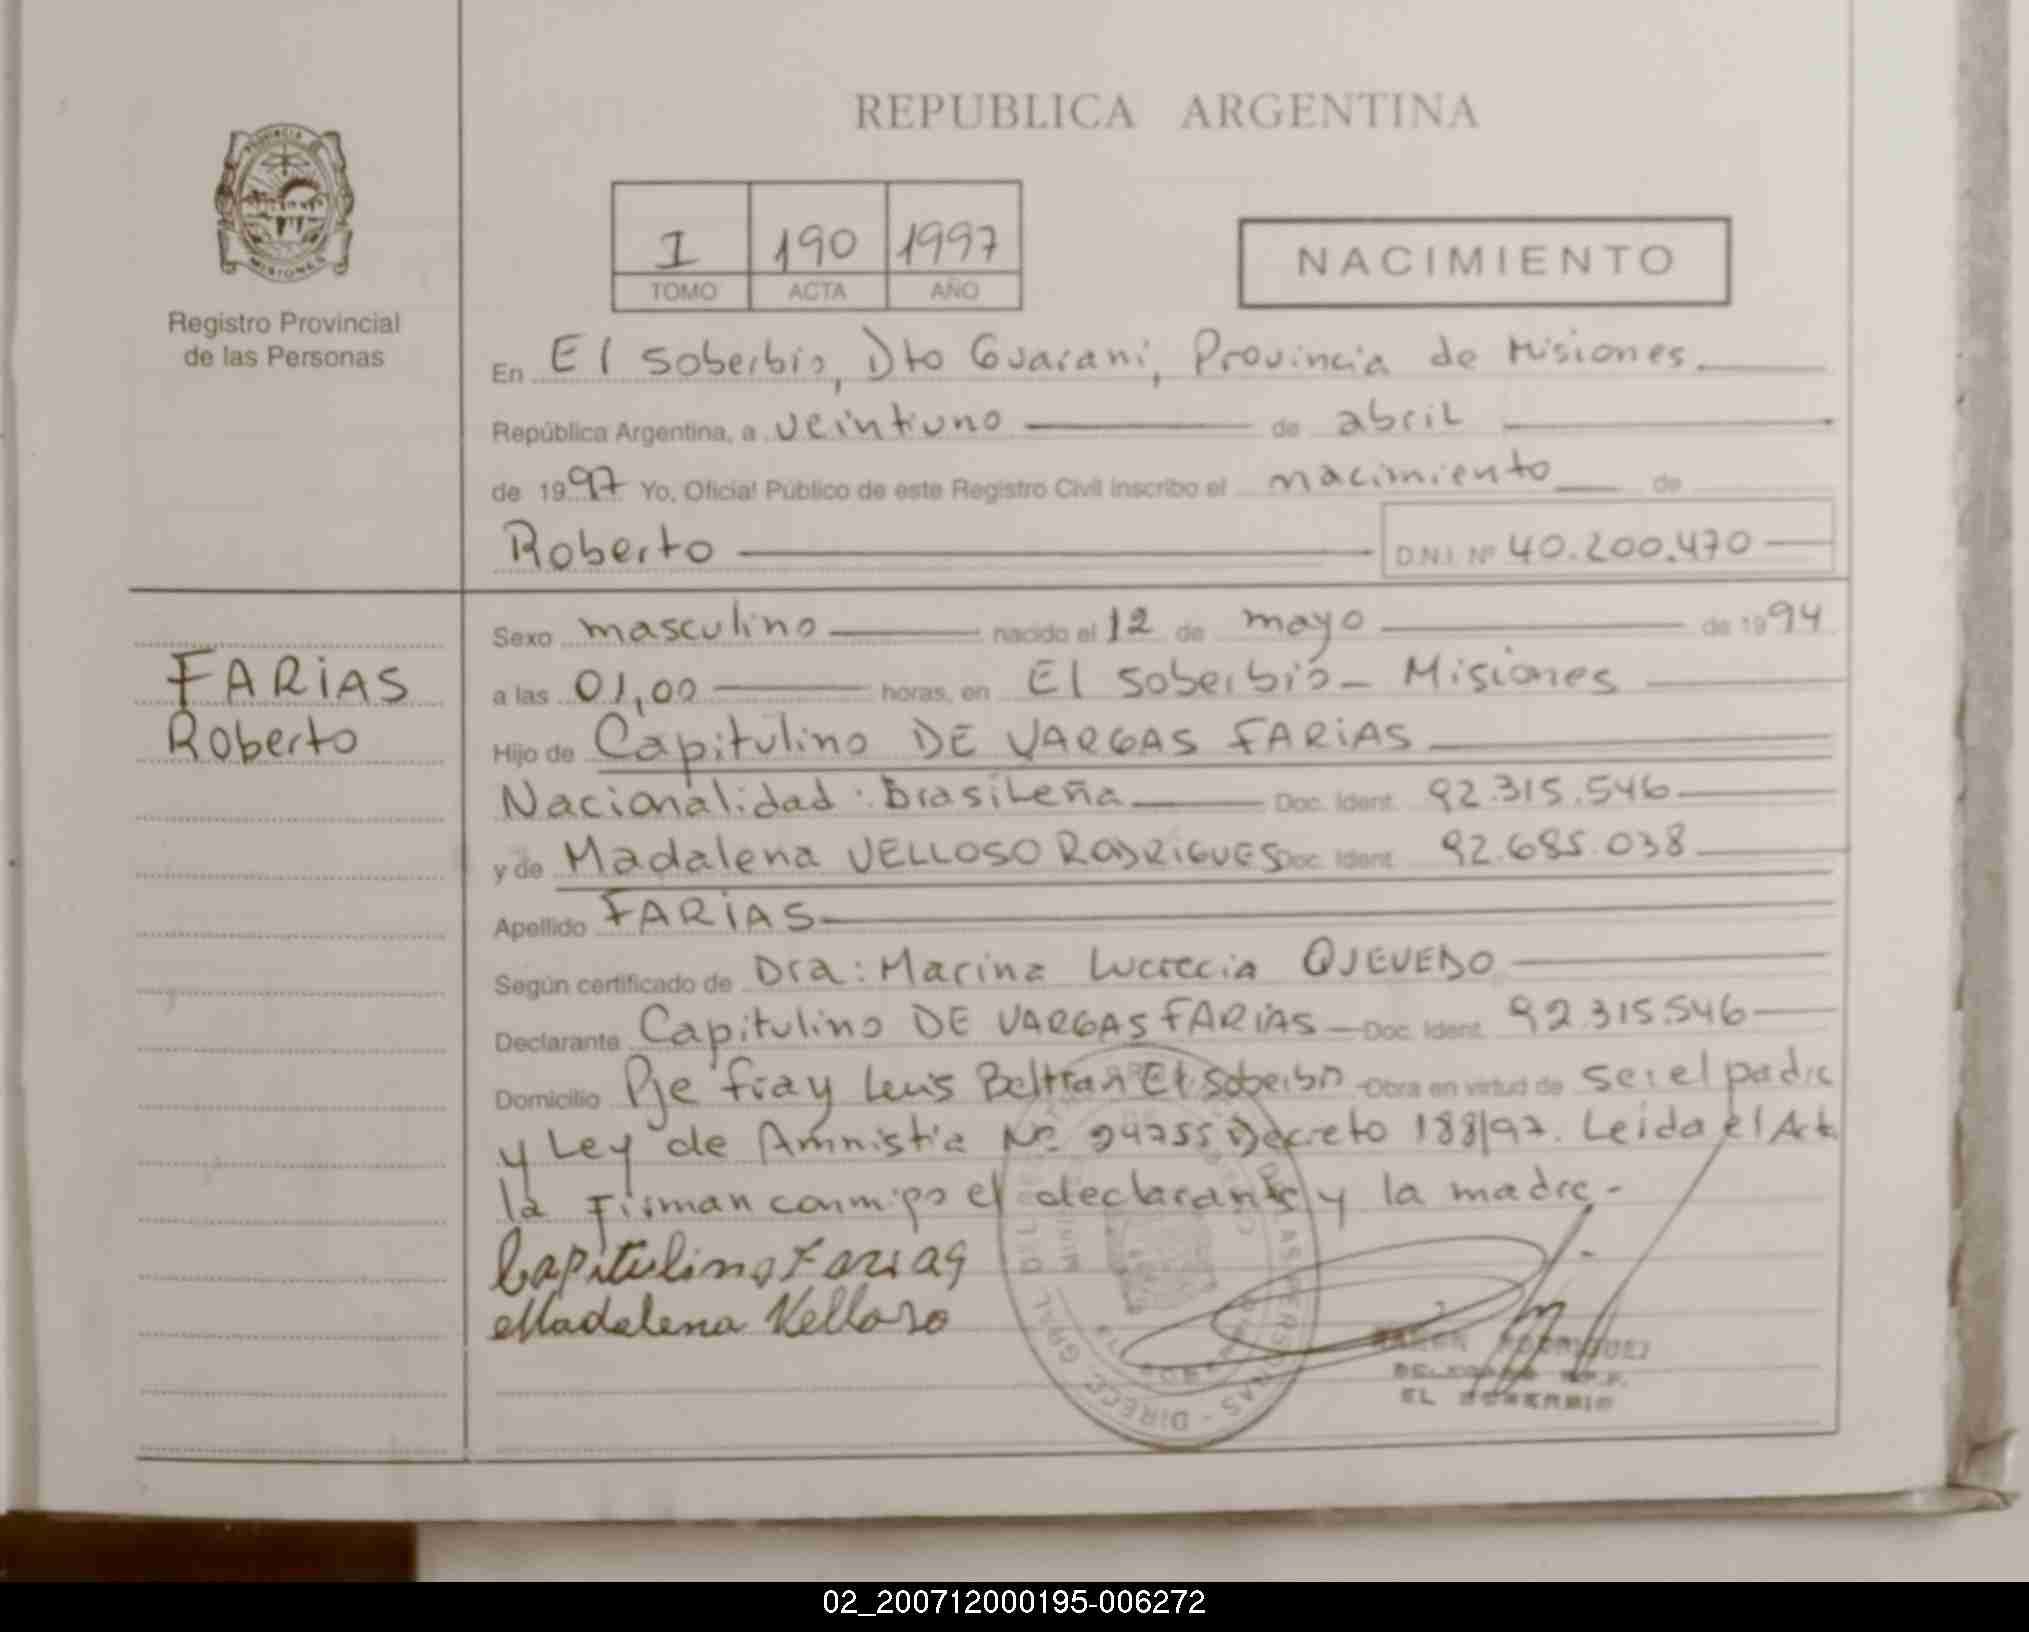 REPUBLICA ARGENTINA
PROVINCIA DE
MISIONES
Registro Provincial
de las Personas
I 190 1997
TOMO ACTA AÑO
NACIMIENTO
En El Soberbio, Dto Guaraní, Provincia de Misiones
República Argentina, a veintiuno de abril
de 1997 Yo, Oficial Público de este Registro Civil inscribo el nacimiento de
Roberto D.N.I. Nº 40.200.470
Sexo masculino nacido el 12 de mayo de 1994
FARIAS
Roberto
a las 01,00 horas, en El Soberbio - Misiones
Hijo de Capitulino DE VARGAS FARIAS
Nacionalidad: brasileña Doc. Ident. 92.315.546
y de Madalena VELLOSO RODRIGUES Doc. Ident. 92.685.038
Apellido FARIAS
Según certificado de Dra: Marina Lucrecia QUEVEDO
Declarante Capitulino DE VARGAS FARIAS Doc. Ident. 92.315.546
Domicilio Pje fray Luis Beltran El Soberbio Obra en virtud de ser el padre
y Ley de Amnistia Nº 24755 Decreto 188/97. Leida el Acta
la firman conmigo el declarante y la madre.-
Capitulino Farias
Madalena Velloso
RODRIGUEZ
EL SOBERBIO
02_200712000195-006272